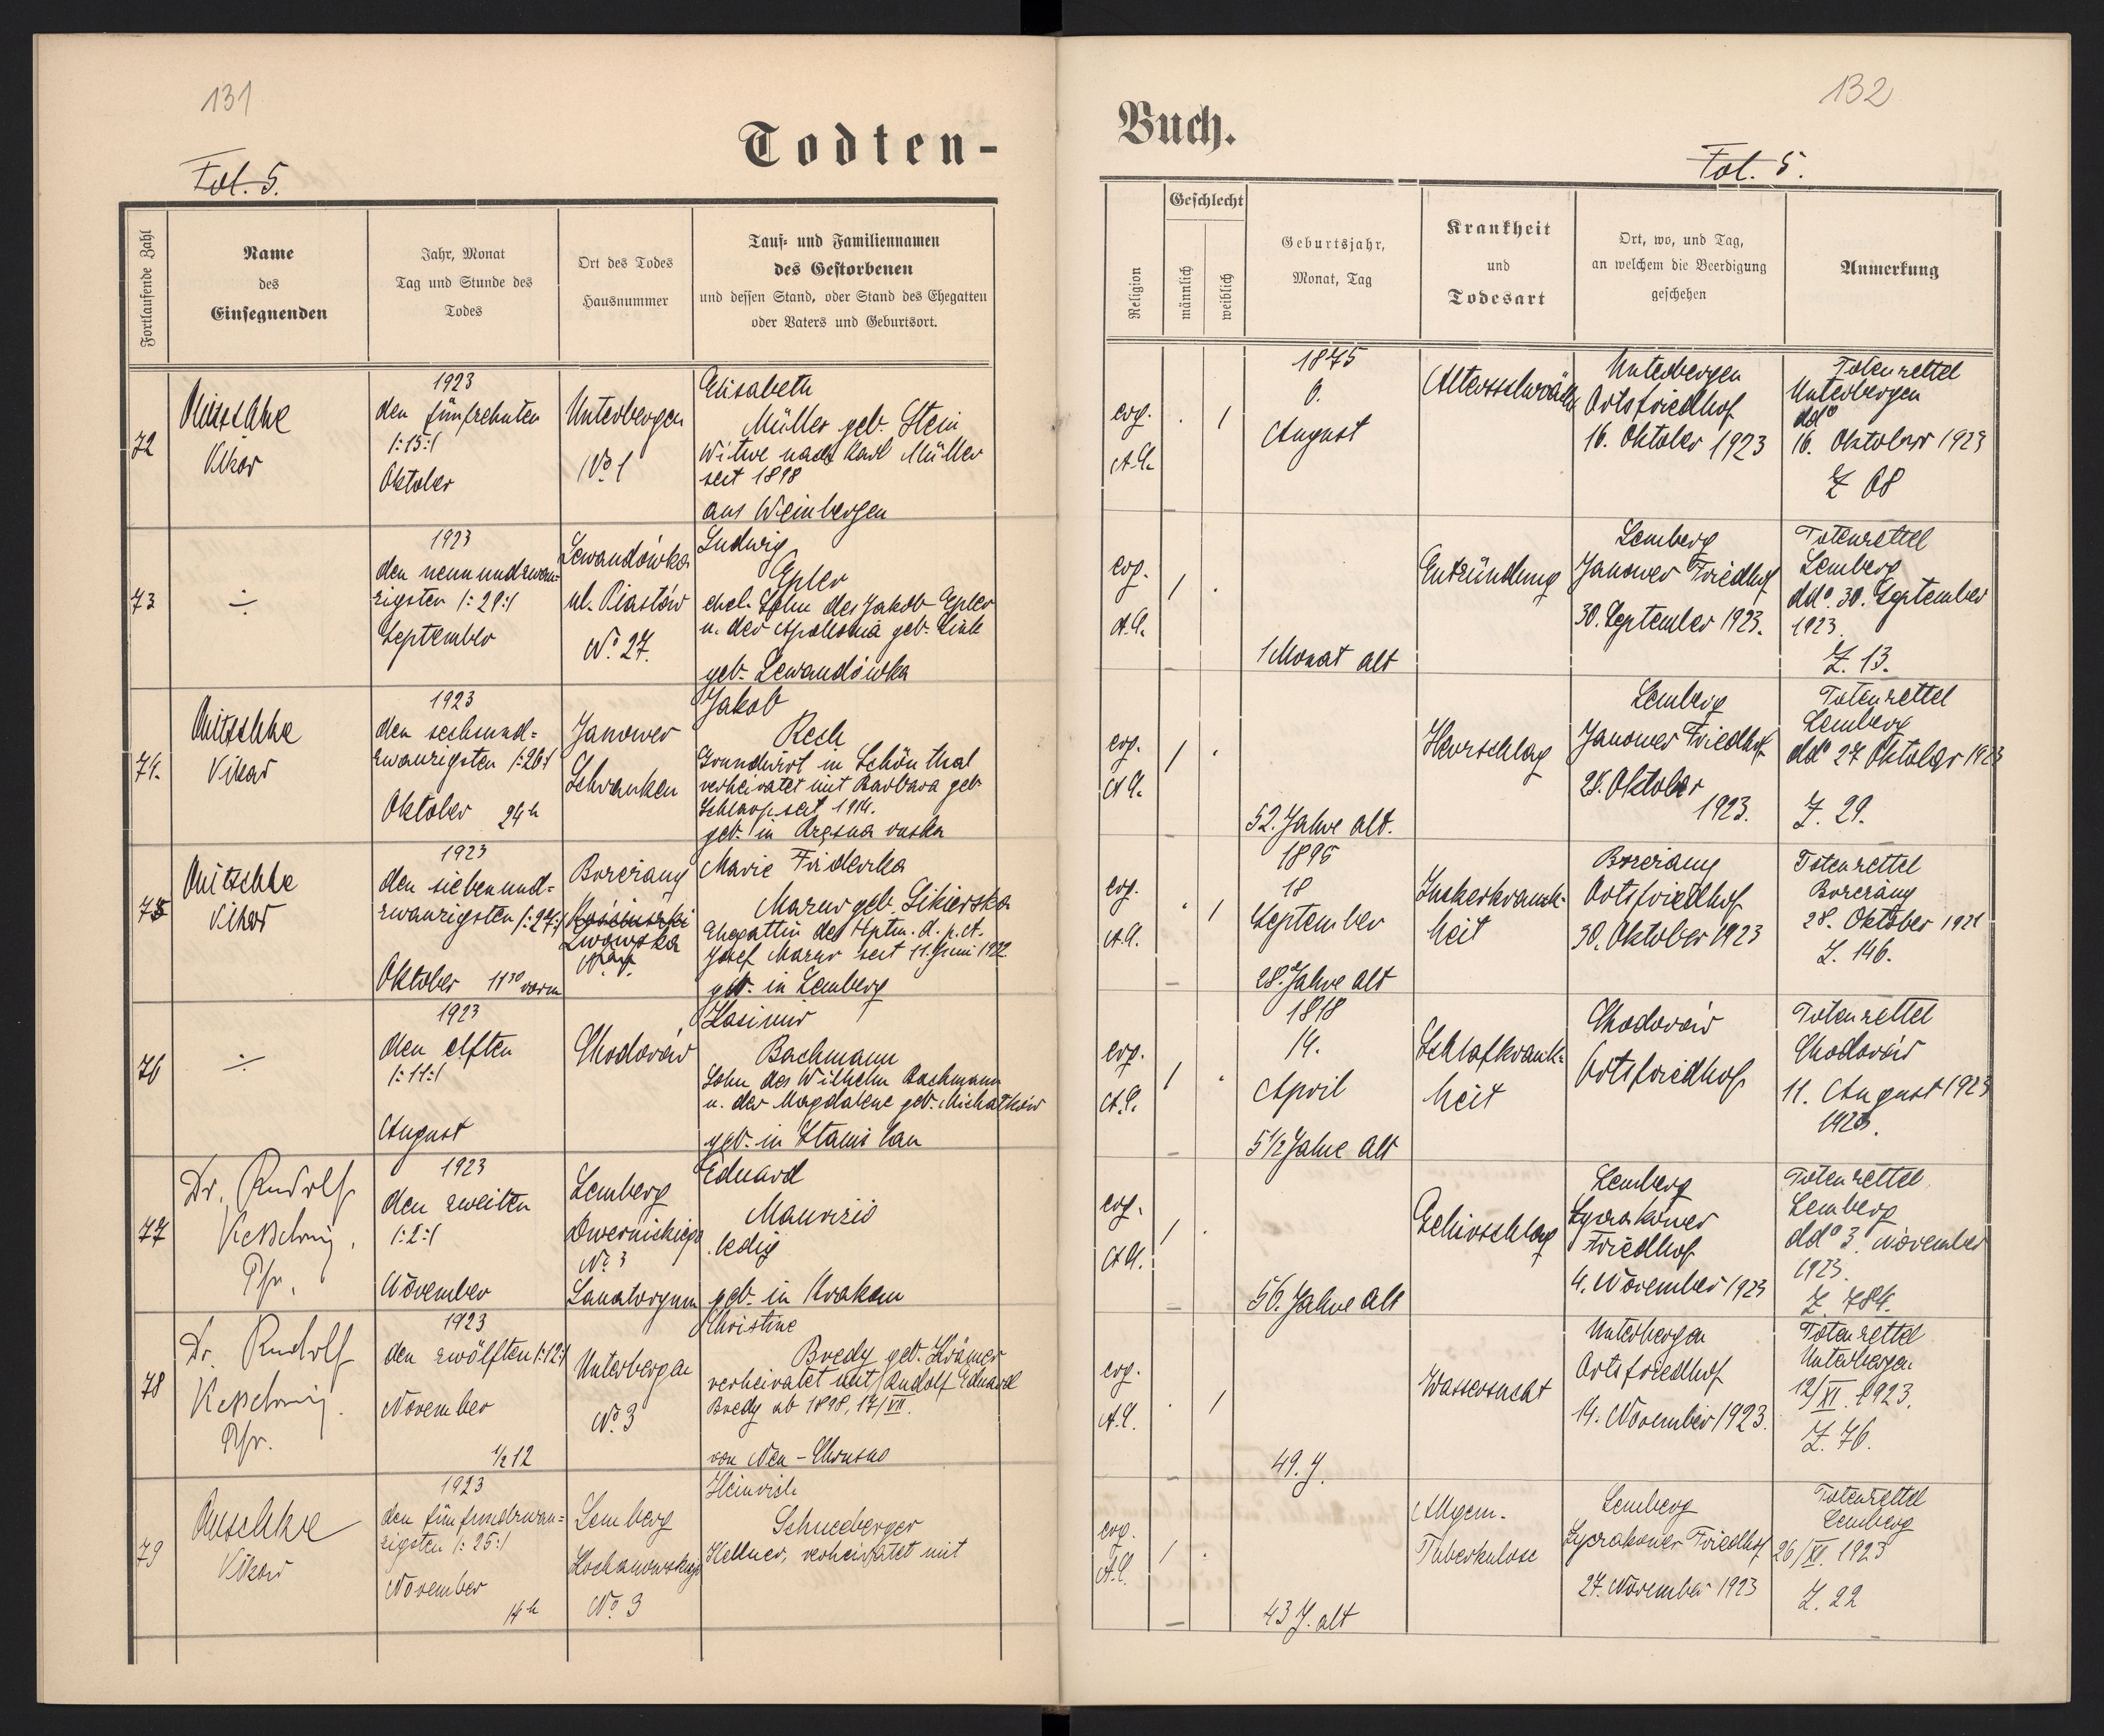 131
Todten-
Fol. 5.
Fortlaufende Zahl
Name
des
Einsegnenden
Jahr, Monat
Tag und Stunde des
Todes
Ort des Todes
Hausnummer
Tauf- und Familiennamen
des Gestorbenen
und dessen Stand, oder Stand des Ehegatten
oder Vaters und Geburtsort.
72
Mitschke
Vikar
1923
den fünfzehnten
/:15:/
Oktober
Unterbergen
No 1
Elisabeth
Müller geb. Stein
Witwe nach Karl Müller
seit 1898
aus Weinbergen
73
÷
1923
den neunundzwan=
zigsten /:29:/
September
Lewandówka
ul. Piastów
No. 27.
Ludwig
Epler
ehel. Sohn des Jakob Epler
u. der Apolonia geb. Link
geb. Lewandówka
74.
Mitschke
Vikar
1923
den sechsund=
zwanzigsten /:26:/
Oktober 24h
Janower
Schranken
Jakob
Rech
Grundwirt in Schönthal
verheiratet mit Barbara geb.
seit 1914.
geb. in ruska
75
Mitschke
Vikar
1923
den siebenund=
zwanzigsten /:27:/
Oktober 11 30 vorm
Borciany
Lwowska
Marie Friderka
Mazur geb. Sikierska
Ehegattin des Hptm. d. p. A.
Josef Mazur seit 11. Juni 1922
geb. in Lemberg
76
÷
1923
den elften
/:11:/
August
Chodorów
Kasimir
Bachmann
Sohn des Wilhelm Bachmann
u. der Magdalene geb. Michałków
geb. in Stanislau
77
Dr. Rudolf
Kesselring,
Pfr.
1923
den zweiten
/:2:/
November
Lemberg
Dwernickiego
No. 3
Sanatoryum
Eduard
Maurizio
ledig
geb. in Krakau
78
Dr. Rudolf
Kesselring.
Pfr.
1923
den zwölften /:12:/
November
1/2 12
Unterbergen
No. 3
Christine
Bredy geb. Krämer
verheiratet mit Rudolf Eduard
Bredy ab 1898, 17/VII.
von Neu-Chrusno
79
Mitschke
Vikar
1923
den fünfundzwan=
zigsten /:25:/
November
14h
Lemberg
Kochanowskiego
No. 3
Heinrich
Schneeberger
Kellner, verheiratet mit
132
Buch.
Fol. 5.
Religion
Geschlecht
männlich
weiblich
Geburtsjahr,
Monat, Tag
Krankheit
und
Todesart
Ort, wo, und Tag,
an welchem die Beerdigung
geschehen
Anmerkung
evg.
A.C.
. /
1845
6.
August
Altersschwäche
Unterbergen
Ortsfriedhof
16. Oktober 1923
Totenzettel
Unterbergen
ddo
16. Oktober 1923
Z 68
evg.
A.C.
/ .
1 Monat alt
Entzündung
Lemberg
Janower Friedhof
30. September 1923.
Totenzettel
Lemberg
ddo. 30. September
1923.
Z. 13.
evg.
A.C.
/ .
52. Jahre alt.
Herzschlag
Lemberg
Janower Friedhof
28. Oktober
1923.
Totenzettel
Lemberg
ddo 27 Oktober 1923
Z. 29.
evg.
A.C.
. /
1895
18
September
28. Jahre alt
Zuckerkrank-
heit
Borciany
Ortsfriedhof
30. Oktober 1923
Totenzettel
Borciany
28. Oktober 1921
Z. 146.
evg.
A.C.
/ .
1918
14.
April
5 1/2 Jahre alt
Schlafkrank=
heit
Chodorów
Ortsfriedhof
Totenzettel
Chodorów
11. August 1923
1923.
evg.
A.C.
/ .
56. Jahre alt
Gehirschlag
Lemberg
Lyczakower
Friedhof
4. November 1923
Totenzettel
Lemberg
ddo 3. November
1923.
Z. 784.
evg.
A.C.
. /
49. J.
Wassersucht
Unterbergen
Ortsfriedhof
14. November 1923.
Totenzettel
Unterbergen
12/XI. 1923.
Z. 76.
evg.
A.C.
/ .
43 J. alt
Allgem.
Tuberkulose
Lemberg
Lyczakower Friedhof
27. November 1923
Totenzettel
Lemberg
26/XI. 1923
Z. 22